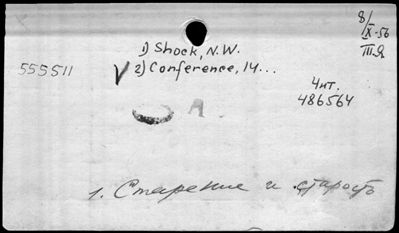 8/
IX-56
III.Я.
1) Shock, N.W.
555511
✓ 2) Conference, 14...
4 кт.
486564
A
1. Старение и старость